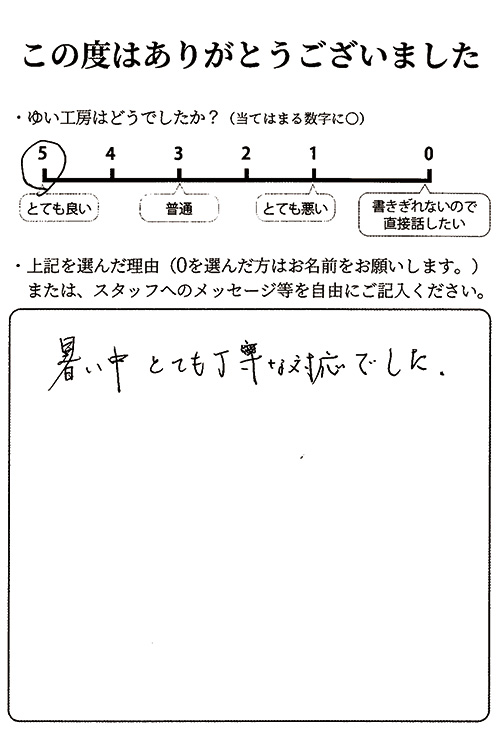 この度はありがとうございました
・ゆい工房はどうでしたか？（当てはまる数字に〇）
5 4 3 2 1 0
とても良い 普通 とても悪い 書ききれないので
直接話したい
・上記を選んだ理由（0を選んだ方はお名前をお願いします。）
または、スタッフへのメッセージ等を自由にご記入ください。
暑い中 とても丁寧な対応でした.